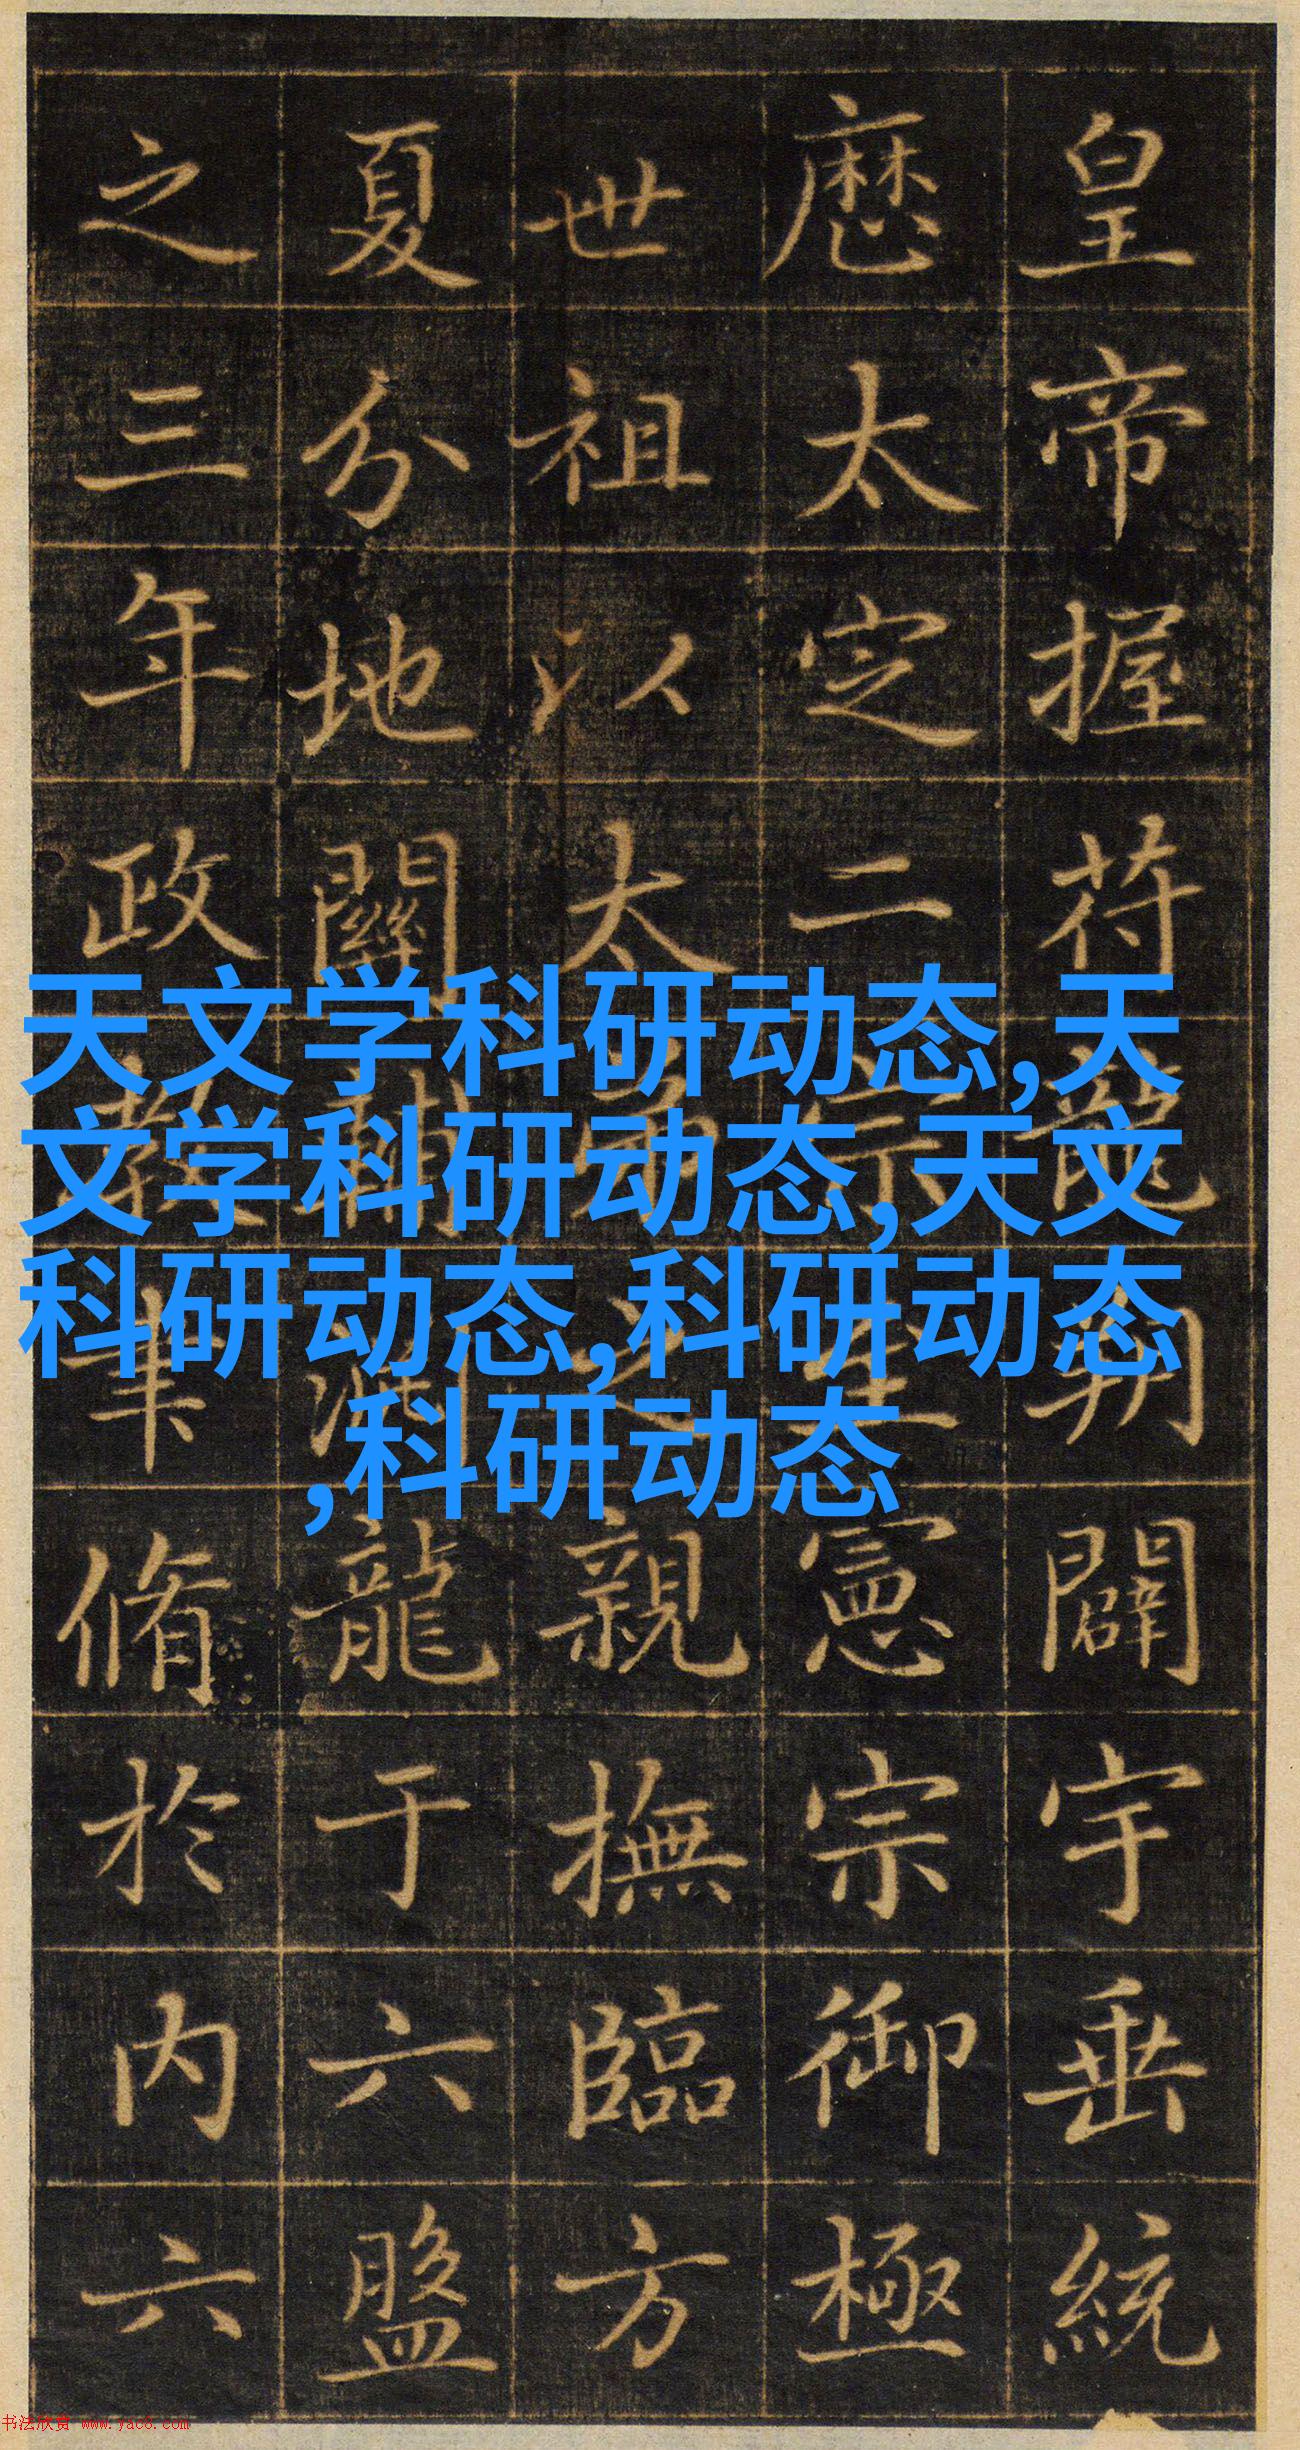 皇帝握符龍朔闢宇垂統
厯太定二宗至憲宗御極
世祖以太弟之親撫臨方
夏分地關輔淵龍于六盤
之三年政教聿脩於内六
天文学科研动态,天
文学科研动态,天文
科研动态,科研动态
,科研动态
书法欣赏 www.yac8.com